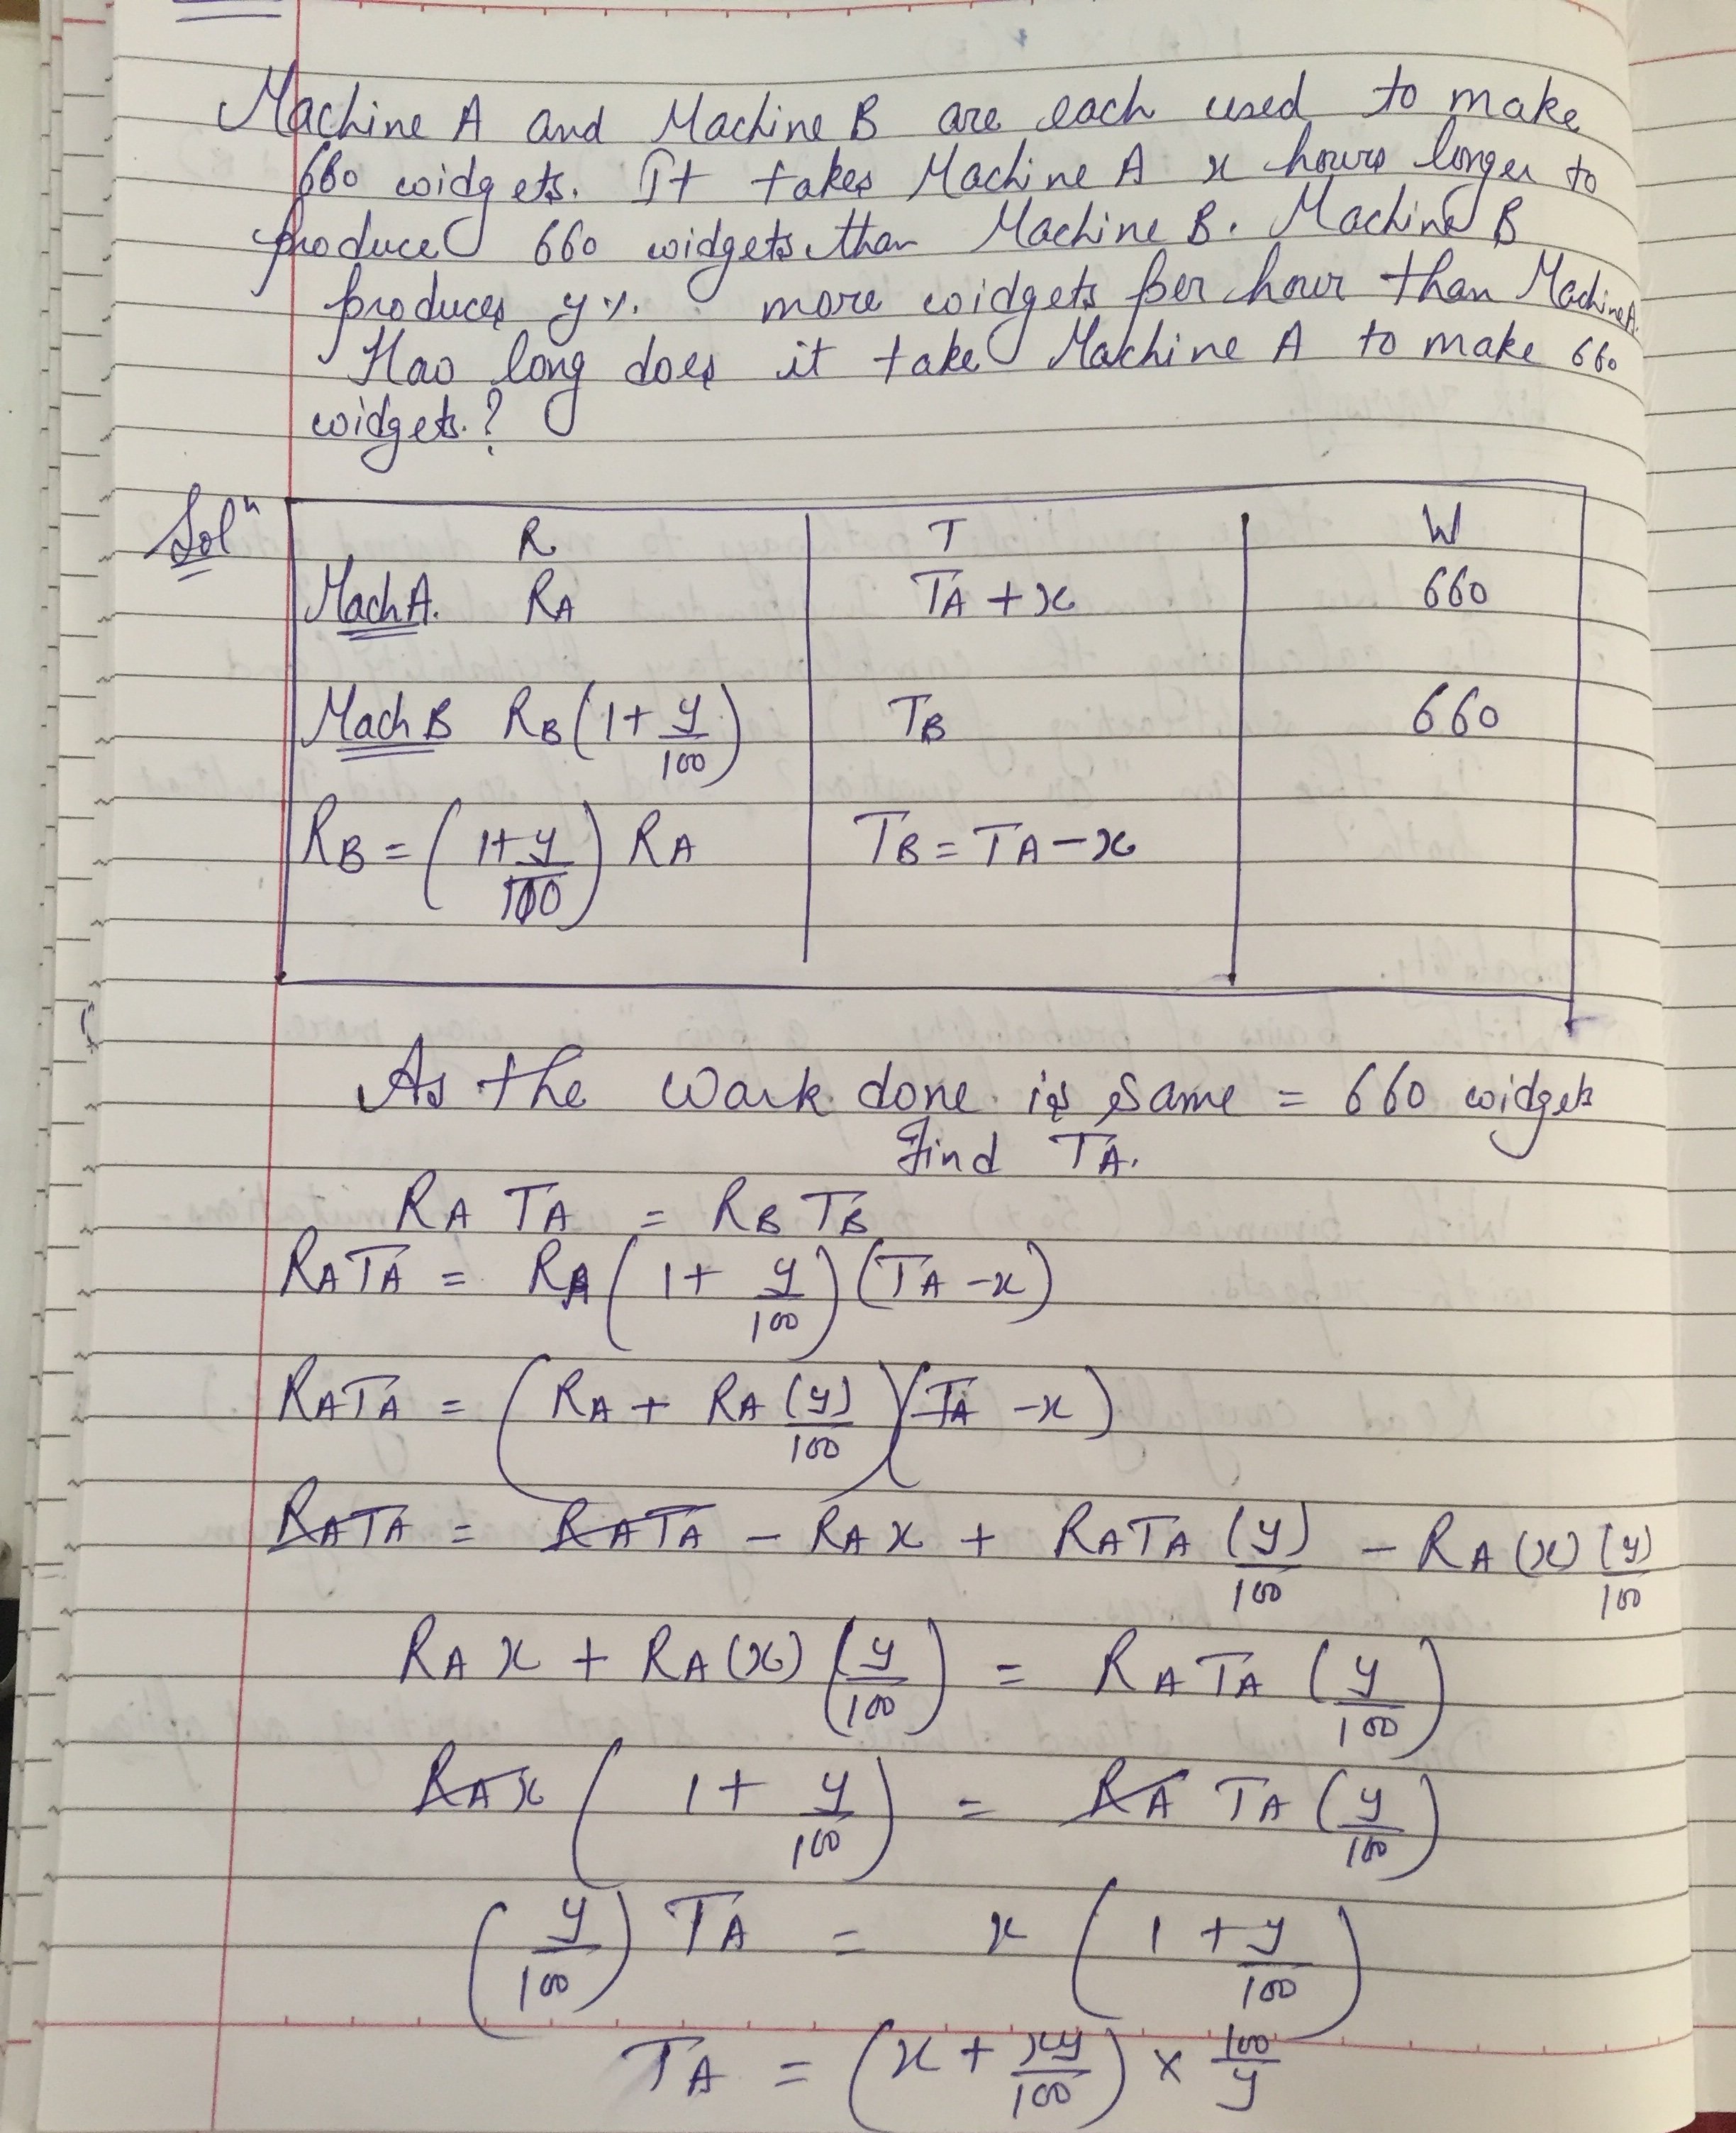 Machine A and Machine B are each used to make
660 widgets. It takes Machine A x hours longer to
produce 660 widgets than Machine B. Machine B
produces y%. more widgets per hour than Machine A.
How long does it take Machine A to make 660
widgets.?
Solⁿ
R T W
Mach A. RA TA + x 660
Mach B RB(1 + y/100) TB 660
RB = (1 + y/100) RA TB = TA - x
As the work done is same = 660 widgets
Find TA.
RA TA = RB TB
RATA = RA(1 + y/100)(TA - x)
RATA = (RA + RA (y)/100)(TA - x)
RATA = RATA - RA x + RATA (y)/100 - RA (x) (y)/100
RA x + RA (x) (y/100) = RA TA (y/100)
RA x (1 + y/100) = RA TA (y/100)
(y/100) TA = x (1 + y/100)
TA = (x + xy/100) × 100/y